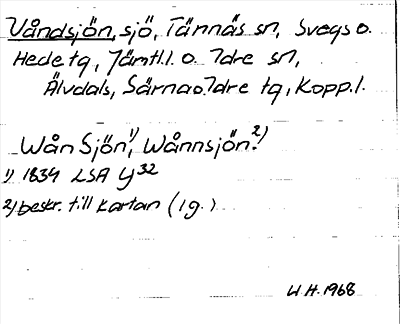 Våndsjön, sjö, Tännäs sn, Svegs o.
Hede tg, Jämtl.l. o. Idre sn,
Älvdals, Särna o. Idre tg, Kopp.l.
Wån Sjön¹⁾, Wånnsjön.²⁾
1) 1834 LSA Y³²
2) beskr. till kartan (1 g.)
W.H. 1968